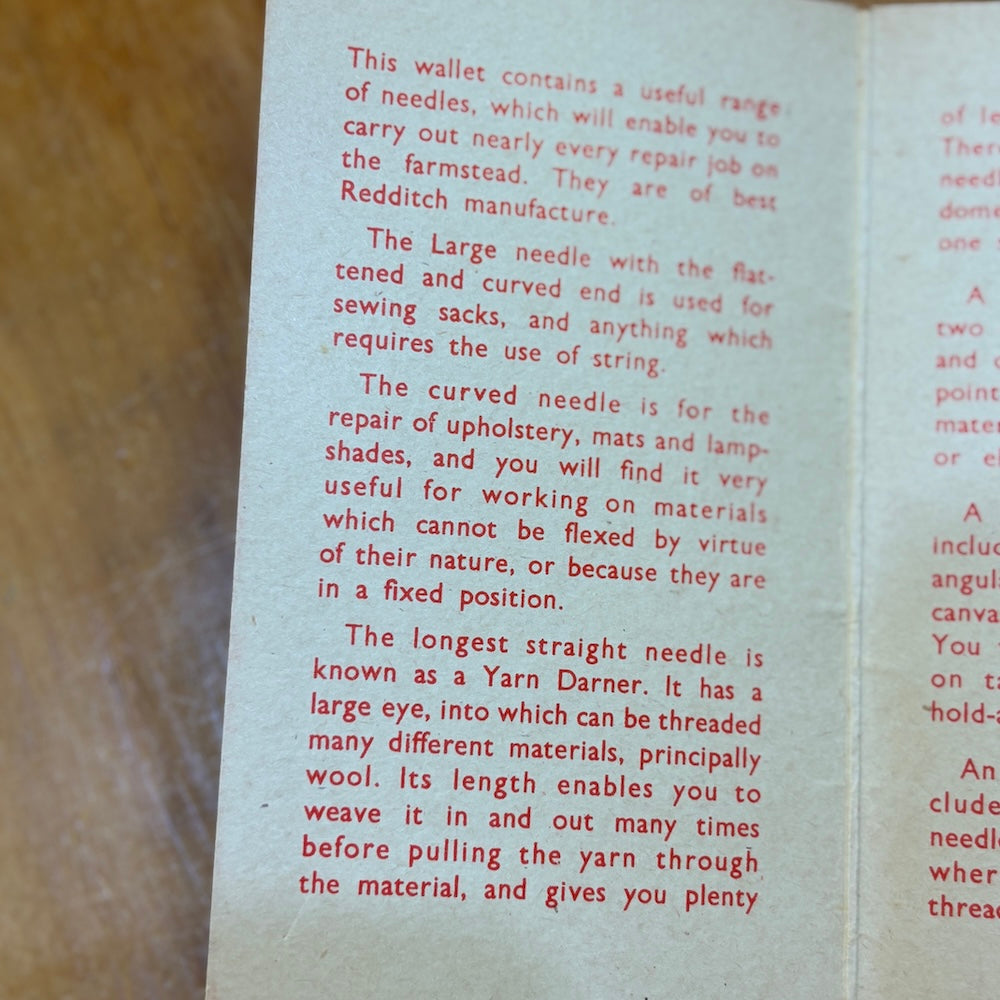 This wallet contains a useful range
of needles, which will enable you to
carry out nearly every repair job on
the farmstead. They are of best
Redditch manufacture.
The Large needle with the flat-
tened and curved end is used for
sewing sacks, and anything which
requires the use of string.
The curved needle is for the
repair of upholstery, mats and lamp-
shades, and you will find it very
useful for working on materials
which cannot be flexed by virtue
of their nature, or because they are
in a fixed position.
The longest straight needle is
known as a Yarn Darner. It has a
large eye, into which can be threaded
many different materials, principally
wool. Its length enables you to
weave it in and out many times
before pulling the yarn through
the material, and gives you plenty
of
A
two
and
or
A
You
on
An